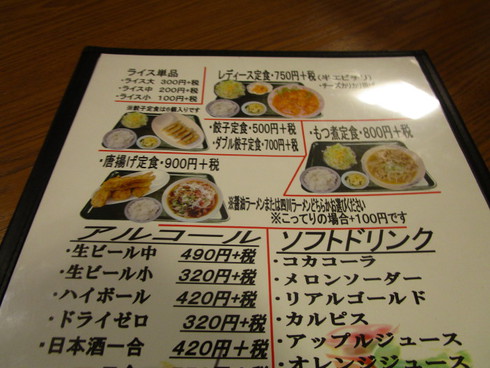 ライス単品
・ライス大 300円+税
・ライス中 200円+税
・ライス小 100円+税
レディース定食・750円+税
※餃子定食は6個入りです
・餃子定食・500円+税
・ダブル餃子定食・700円+税
・もつ煮定食・800円+税
・唐揚げ定食・900円+税
※醤油ラーメンまたは四川ラーメンどちらかお選びください
※こってりの場合+100円です
アルコール
・生ビール中 490円+税
・生ビール小 320円+税
・ハイボール 420円+税
・ドライゼロ 320円+税
・日本酒一合 420円+税
ソフトドリンク
・コカコーラ
・メロンソーダー
・リアルゴールド
・カルピス
・アップルジュース
・オレンジジュース